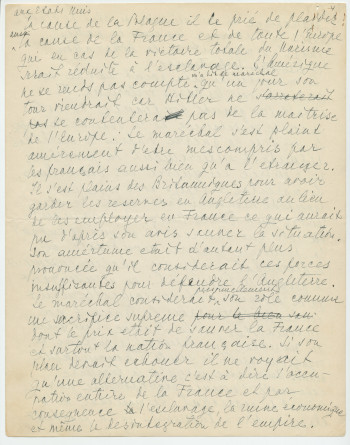 aux Etats Unis
la cause de la Pologne il le prie de plaider
aussi la cause de la France et de toute l'Europe
qui en cas de la victoire totale du Nazisme
serait réduite à l'esclavage. L'Amérique
ne se rends pas compte, a dit le maréchal qu'un jour son
tour viendrait car Hitler ne
se contentera pas de la maîtrise
de l'Europe; Le maréchal s'est plaint
amèrement d'être mescompris par
les français aussi bien qu'à l'étranger.
Il s'est plains des Britanniques pour avoir
garder les reserves en Angleterre au lieu
de les employer en France ce qui aurait
pu d'après son avis sauver la situation.
Son amertume etait d'autant plus
prononcée qu'il considerait ces forces
insuffisantes pour défendre l'Angleterre.
Le maréchal considerait son rôle comme
un sacrifice suprème pour le bien son
dont le prix était de sauver la France
et surtout la nation française. Si son
plan devait echouer il ne voyait
qu'une alternative c'est à dire l'occu-
pation entière de la France et par
consequence l'esclavage, la ruine economique
et même la desintegration de l'empire.